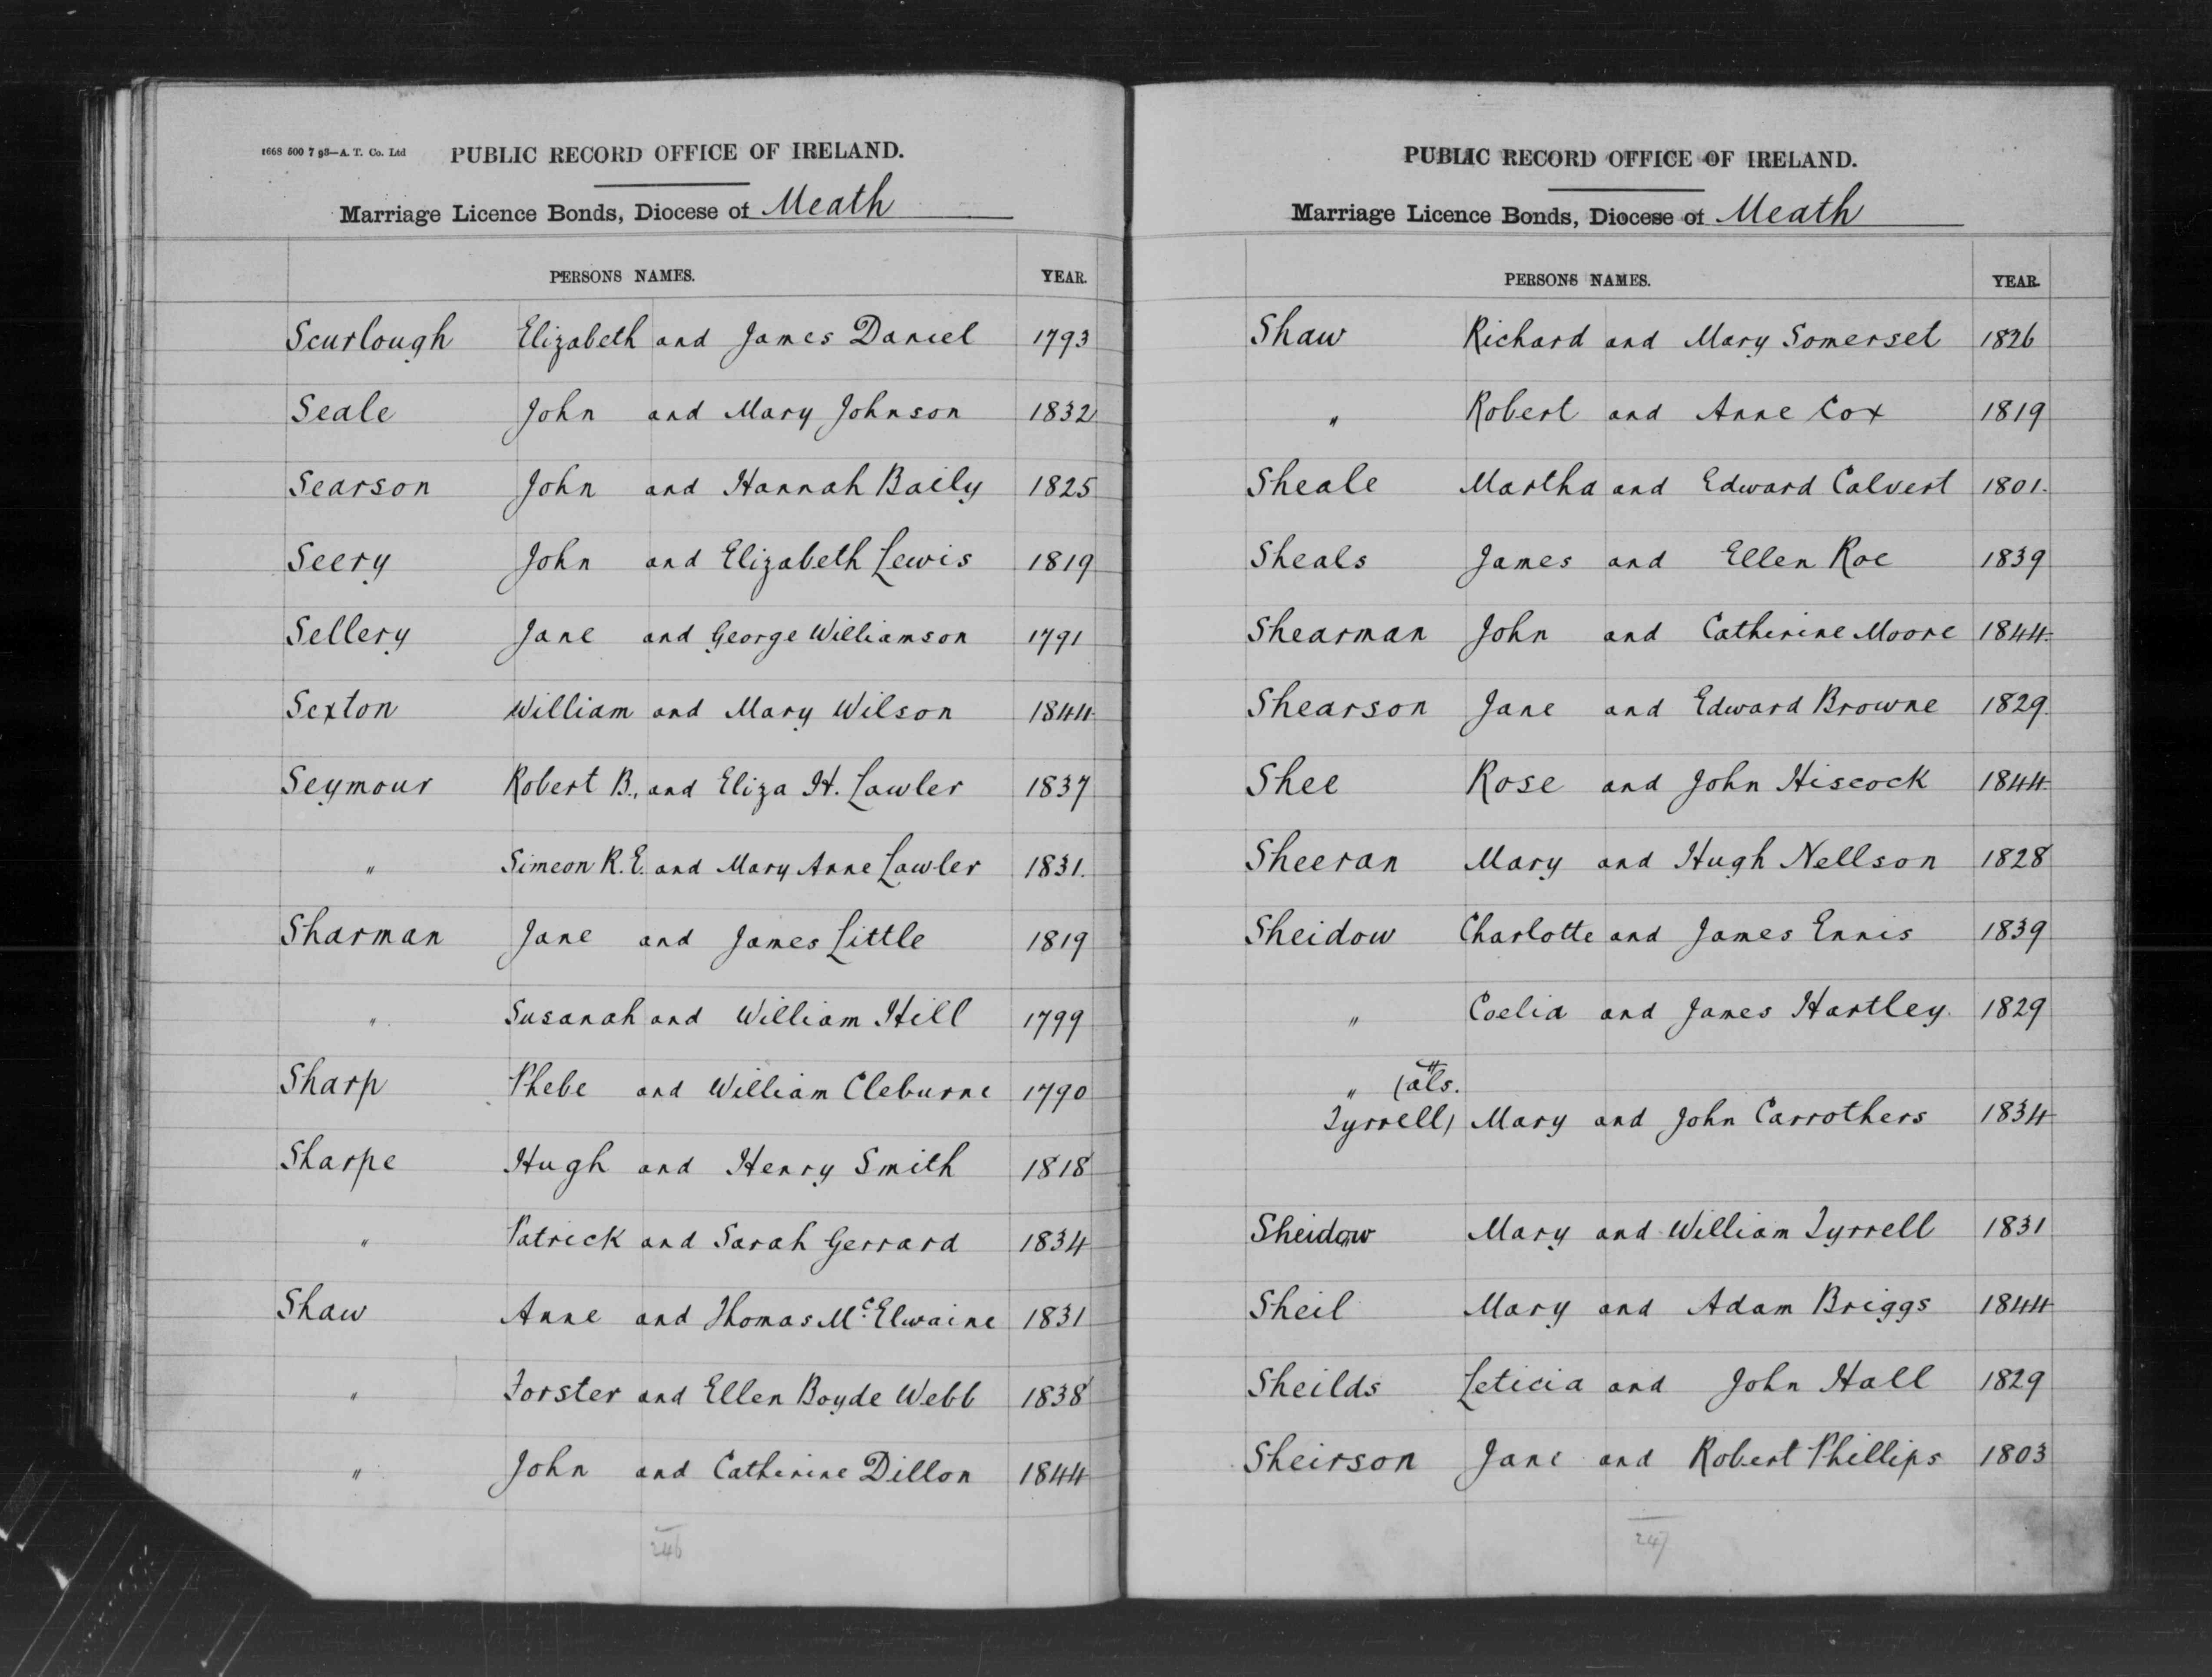 1668 500 7 98—A. T. Co. Ltd
PUBLIC RECORD OFFICE OF IRELAND.
Marriage Licence Bonds, Diocese of Meath
PERSONS NAMES. YEAR.
Scurlough Elizabeth and James Daniel 1793
Seale John and Mary Johnson 1832
Searson John and Hannah Baily 1825
Seery John and Elizabeth Lewis 1819
Sellery Jane and George Williamson 1791
Sexton William and Mary Wilson 1844
Seymour Robert B., and Eliza H. Lawler 1837
" Simeon R. E. and Mary Anne Lawler 1831.
Sharman Jane and James Little 1819
" Susanah and William Hill 1799
Sharp Phebe and William Cleburne 1790
Sharpe Hugh and Henry Smith 1818
" Patrick and Sarah Gerrard 1834
Shaw Anne and Thomas McElwaine 1831
" Forster and Ellen Boyde Webb 1838
" John and Catherine Dillon 1844
246
PUBLIC RECORD OFFICE OF IRELAND.
Marriage Licence Bonds, Diocese of Meath
PERSONS NAMES. YEAR.
Shaw Richard and Mary Somerset 1826
" Robert and Anne Cox 1819
Sheale Martha and Edward Calvert 1801.
Sheals James and Ellen Roe 1839
Shearman John and Catherine Moore 1844.
Shearson Jane and Edward Browne 1829.
Shee Rose and John Hiscock 1844.
Sheeran Mary and Hugh Nellson 1828
Sheidow Charlotte and James Ennis 1839
" Coelia and James Hartley. 1829
" (als.
Tyrrell) Mary and John Carrothers 1834
Sheidow Mary and William Tyrrell 1831
Sheil Mary and Adam Briggs 1844
Sheilds Leticia and John Hall 1829
Sheirson Jane and Robert Phillips 1803
247